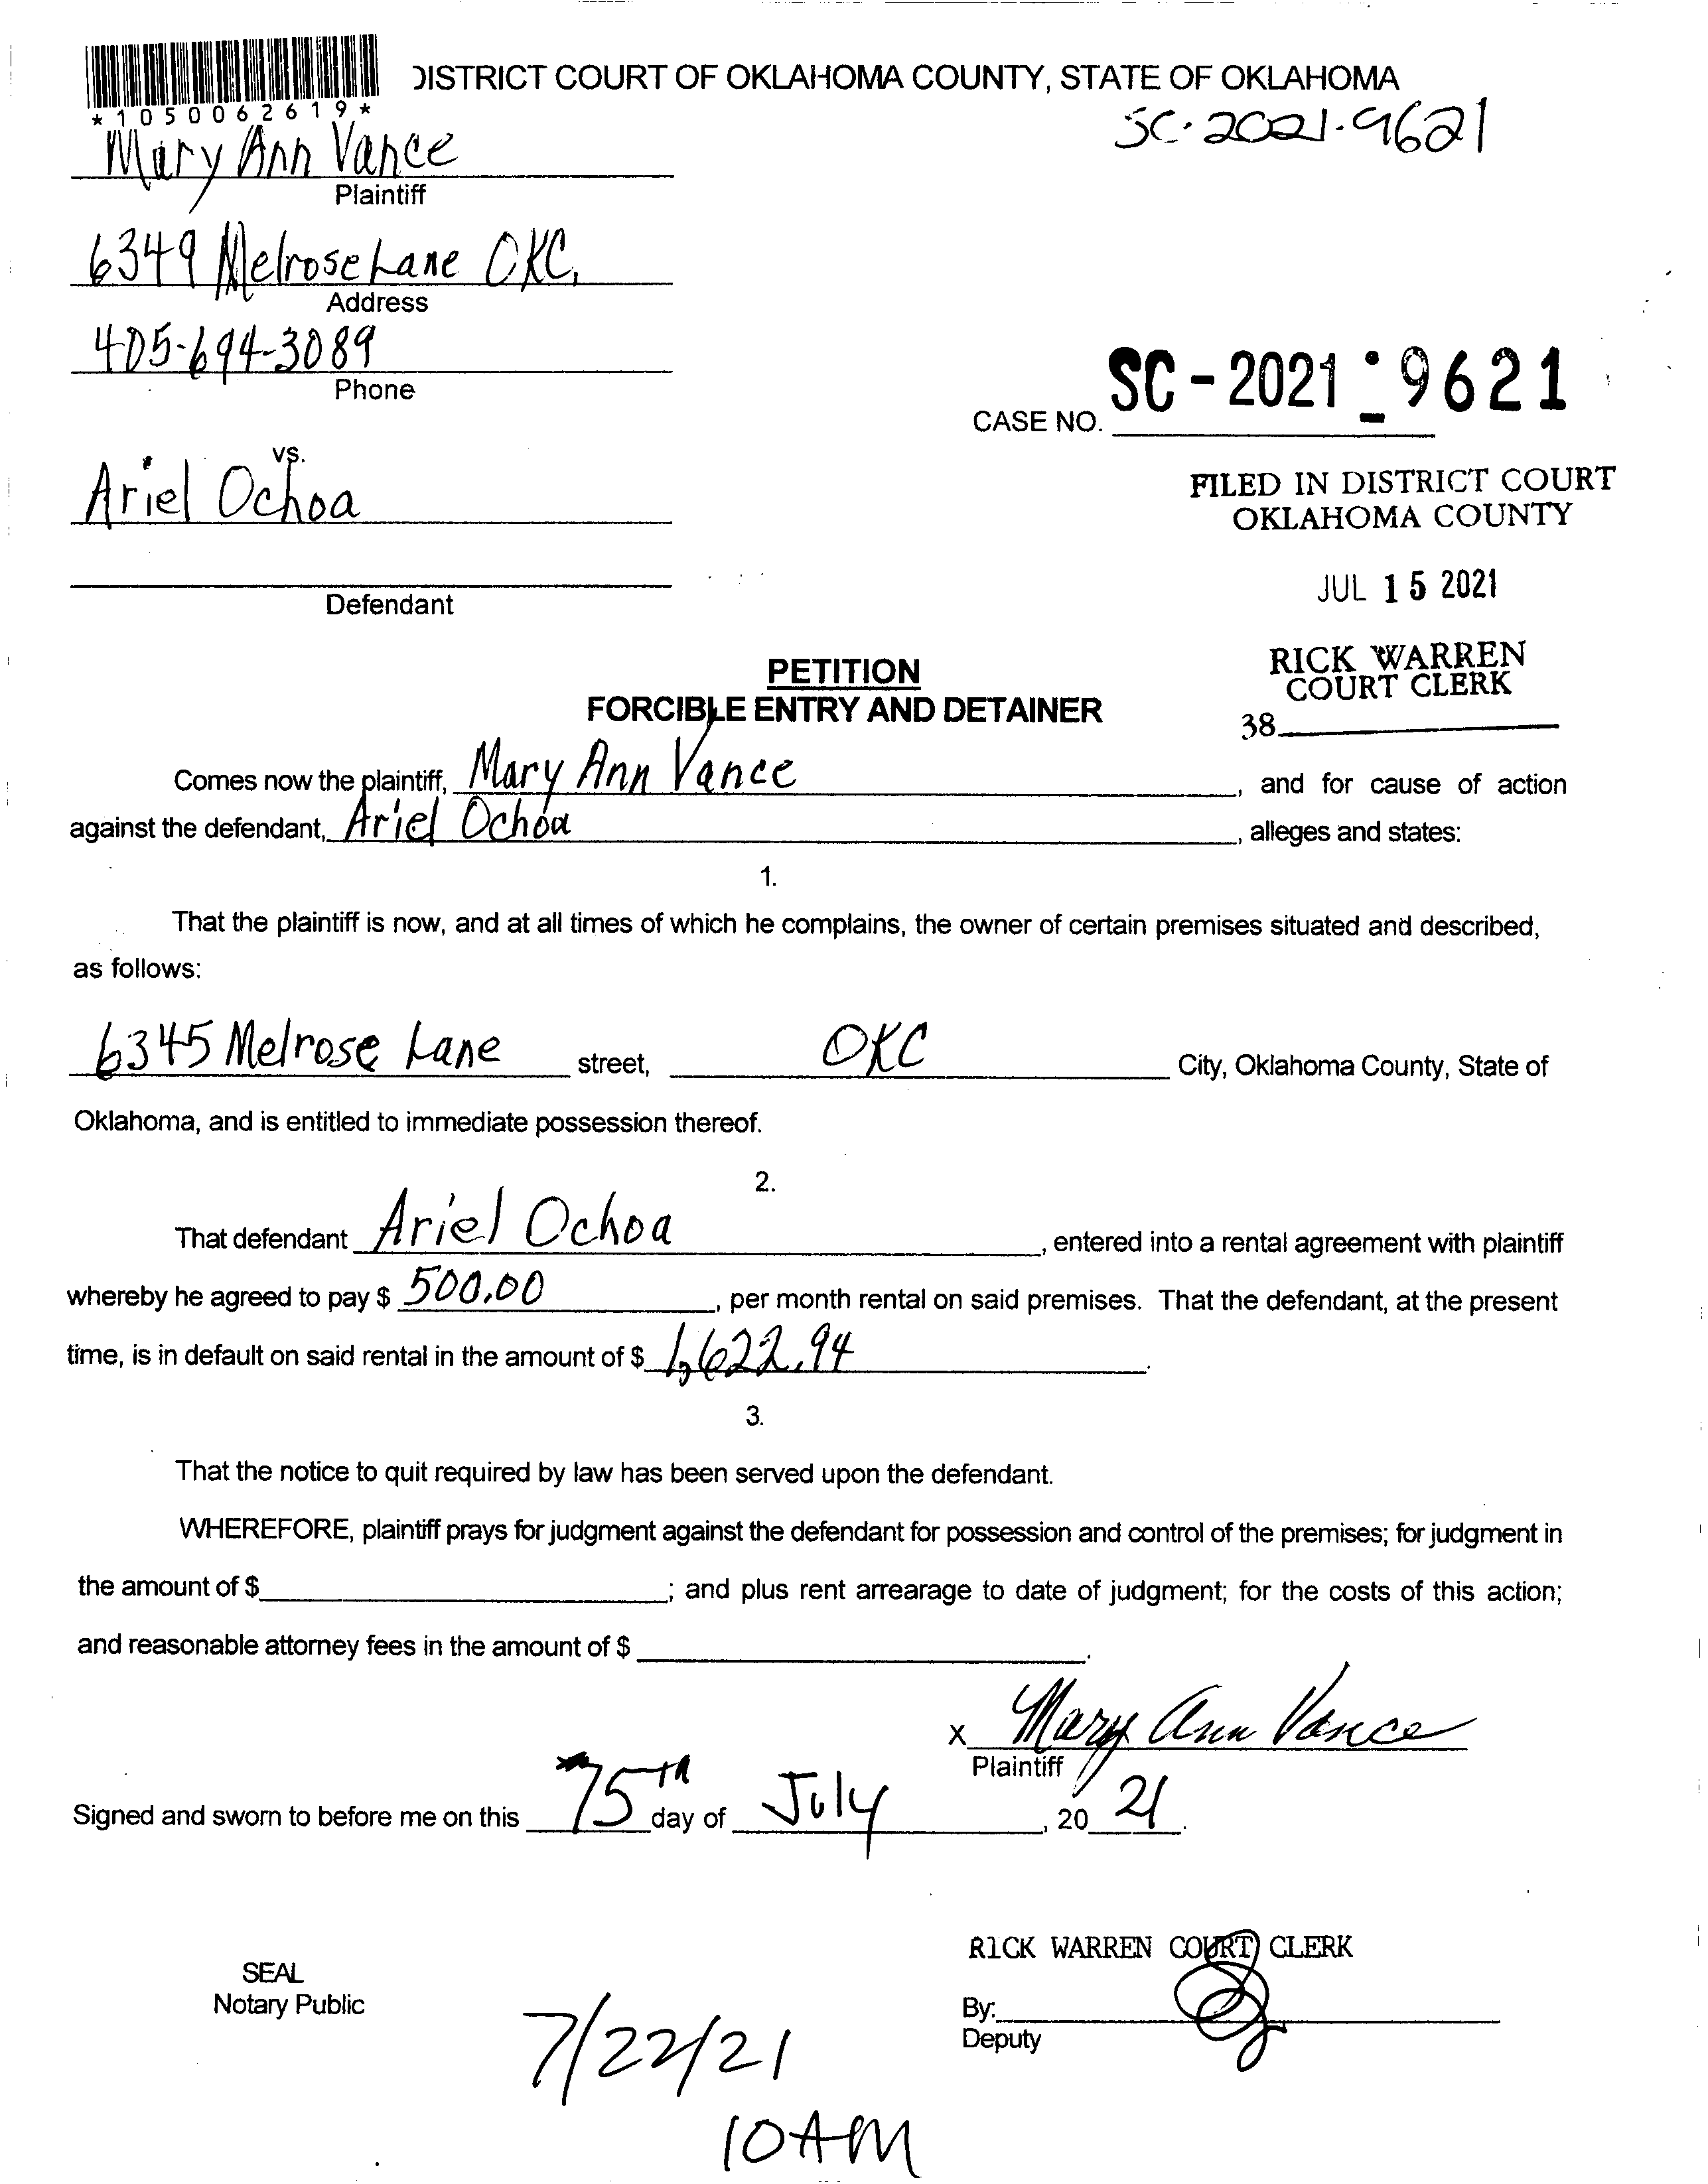 DISTRICT COURT OF OKLAHOMA COUNTY, STATE OF OKLAHOMA
*1050062619*
SC-2021-9621
Mary Ann Vance
Plaintiff
6349 Melrose Lane OKC,
Address
405-694-3089
Phone
CASE NO. SC-2021-9621
vs.
Ariel Ochoa
FILED IN DISTRICT COURT
OKLAHOMA COUNTY
Defendant
JUL 15 2021
RICK WARREN
COURT CLERK
38
PETITION
FORCIBLE ENTRY AND DETAINER
Comes now the plaintiff, Mary Ann Vance, and for cause of action
against the defendant, Ariel Ochoa, alleges and states:
1.
That the plaintiff is now, and at all times of which he complains, the owner of certain premises situated and described,
as follows:
6345 Melrose Lane street, OKC City, Oklahoma County, State of
Oklahoma, and is entitled to immediate possession thereof.
2.
That defendant Ariel Ochoa, entered into a rental agreement with plaintiff
whereby he agreed to pay $ 500.00, per month rental on said premises. That the defendant, at the present
time, is in default on said rental in the amount of $ 1,622.94.
3.
That the notice to quit required by law has been served upon the defendant.
WHEREFORE, plaintiff prays for judgment against the defendant for possession and control of the premises; for judgment in
the amount of $; and plus rent arrearage to date of judgment; for the costs of this action;
and reasonable attorney fees in the amount of $.
X Mary Ann Vance
Plaintiff
Signed and sworn to before me on this 15TH day of July, 20 21.
RICK WARREN COURT CLERK
SEAL
Notary Public
By:
Deputy
7/22/21
10AM